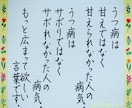 うつ病は
甘えではなく
甘えられなかった人の
病気。
うつ病は
サボりではなく
サボれなかった人の
病気。
もっと広まって欲しい
言葉です。